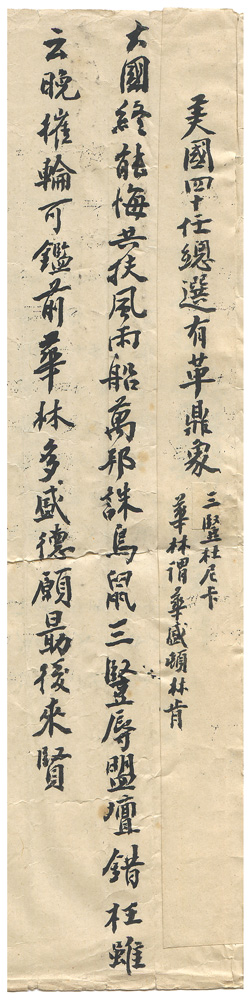 美國四十任總選有革鼎象
三豎杜尼卡
華林謂華盛頓林肯
大國終能悔共扶風雨船萬邦誅鳥鼠三豎辱盟壇錯枉雖
云晚摧輪可鑑前華林多盛德願勗後來賢